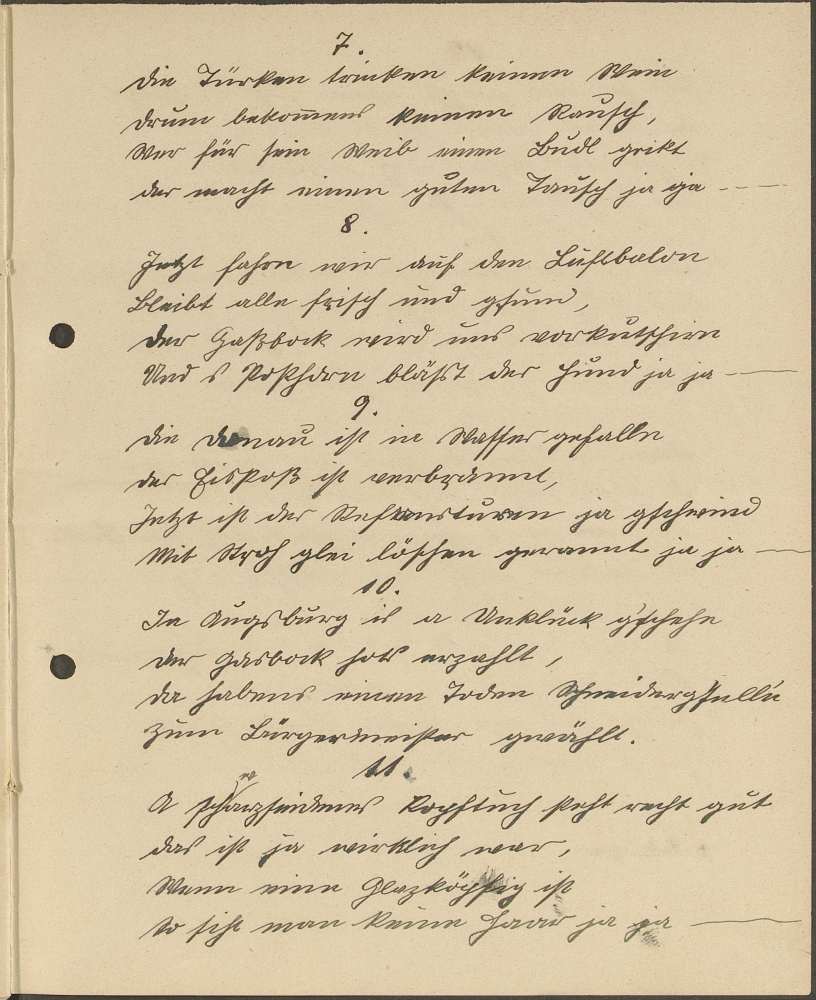 7.
Die Türken trinken keinen Wein
Drum bekom̅ens keinen Rausch,
Wer für sein Weib einen Budl grikt
der macht einen guten Tausch ja ja
8.
Jetzt fahrn wir auf den Luftbalon
Bleibt alle frisch und gsund,
Der Gaßbock wird uns vorkutschirn
Und s Posthorn bläßt der Hund ja ja
9.
Die Donau ist in Wasser gefalln
der Eisstoß ist verbrannt,
Jetzt ist der Stefansturm ja gschwind
Mit Stroh glei löschen gerannt ja ja
10.
In Augsburg is a Unklück g'schehn
der Gasbock hots erzahlt,
da habens einen Toden Schneidergselln
zum Bürgermeister gewählt.
11.
A schwarzseidenes Kopftuch steht recht gut
das ist ja wirklich war,
Wenn eine Glazköpfig ist
So siht man keine Haar ja ja